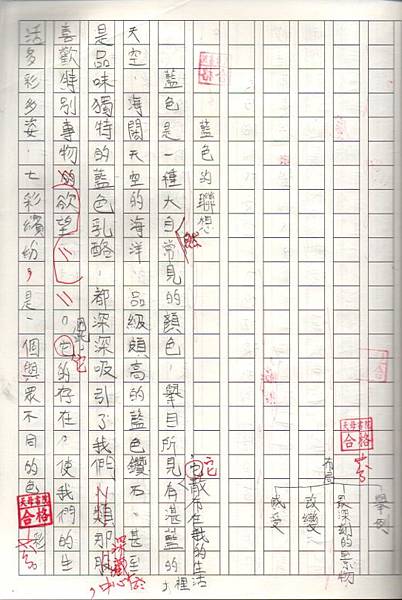 舉例
最深刻的景物
改變
感受
布局
天母書院
合格
藍色的聯想
藍色是一種大自常見的顏色，舉目所見有湛藍的
然
它散布在我的生活裡，
它
天空、海闊天空的海洋、品級頗高的藍色鑽石、甚至
是品味獨特的藍色乳酪，都深深吸引了我們人類那股
深藏於
心中
喜歡特別專物的欲望。它的存在，使我們的生
它
活多彩多姿、七彩繽紛，是一個與眾不同的色彩
天母書院
合格